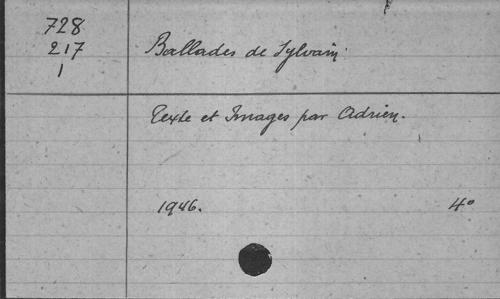 728
217
1
Ballades de Sylvain.
Texte et Images par Adrien.
1946. 4°